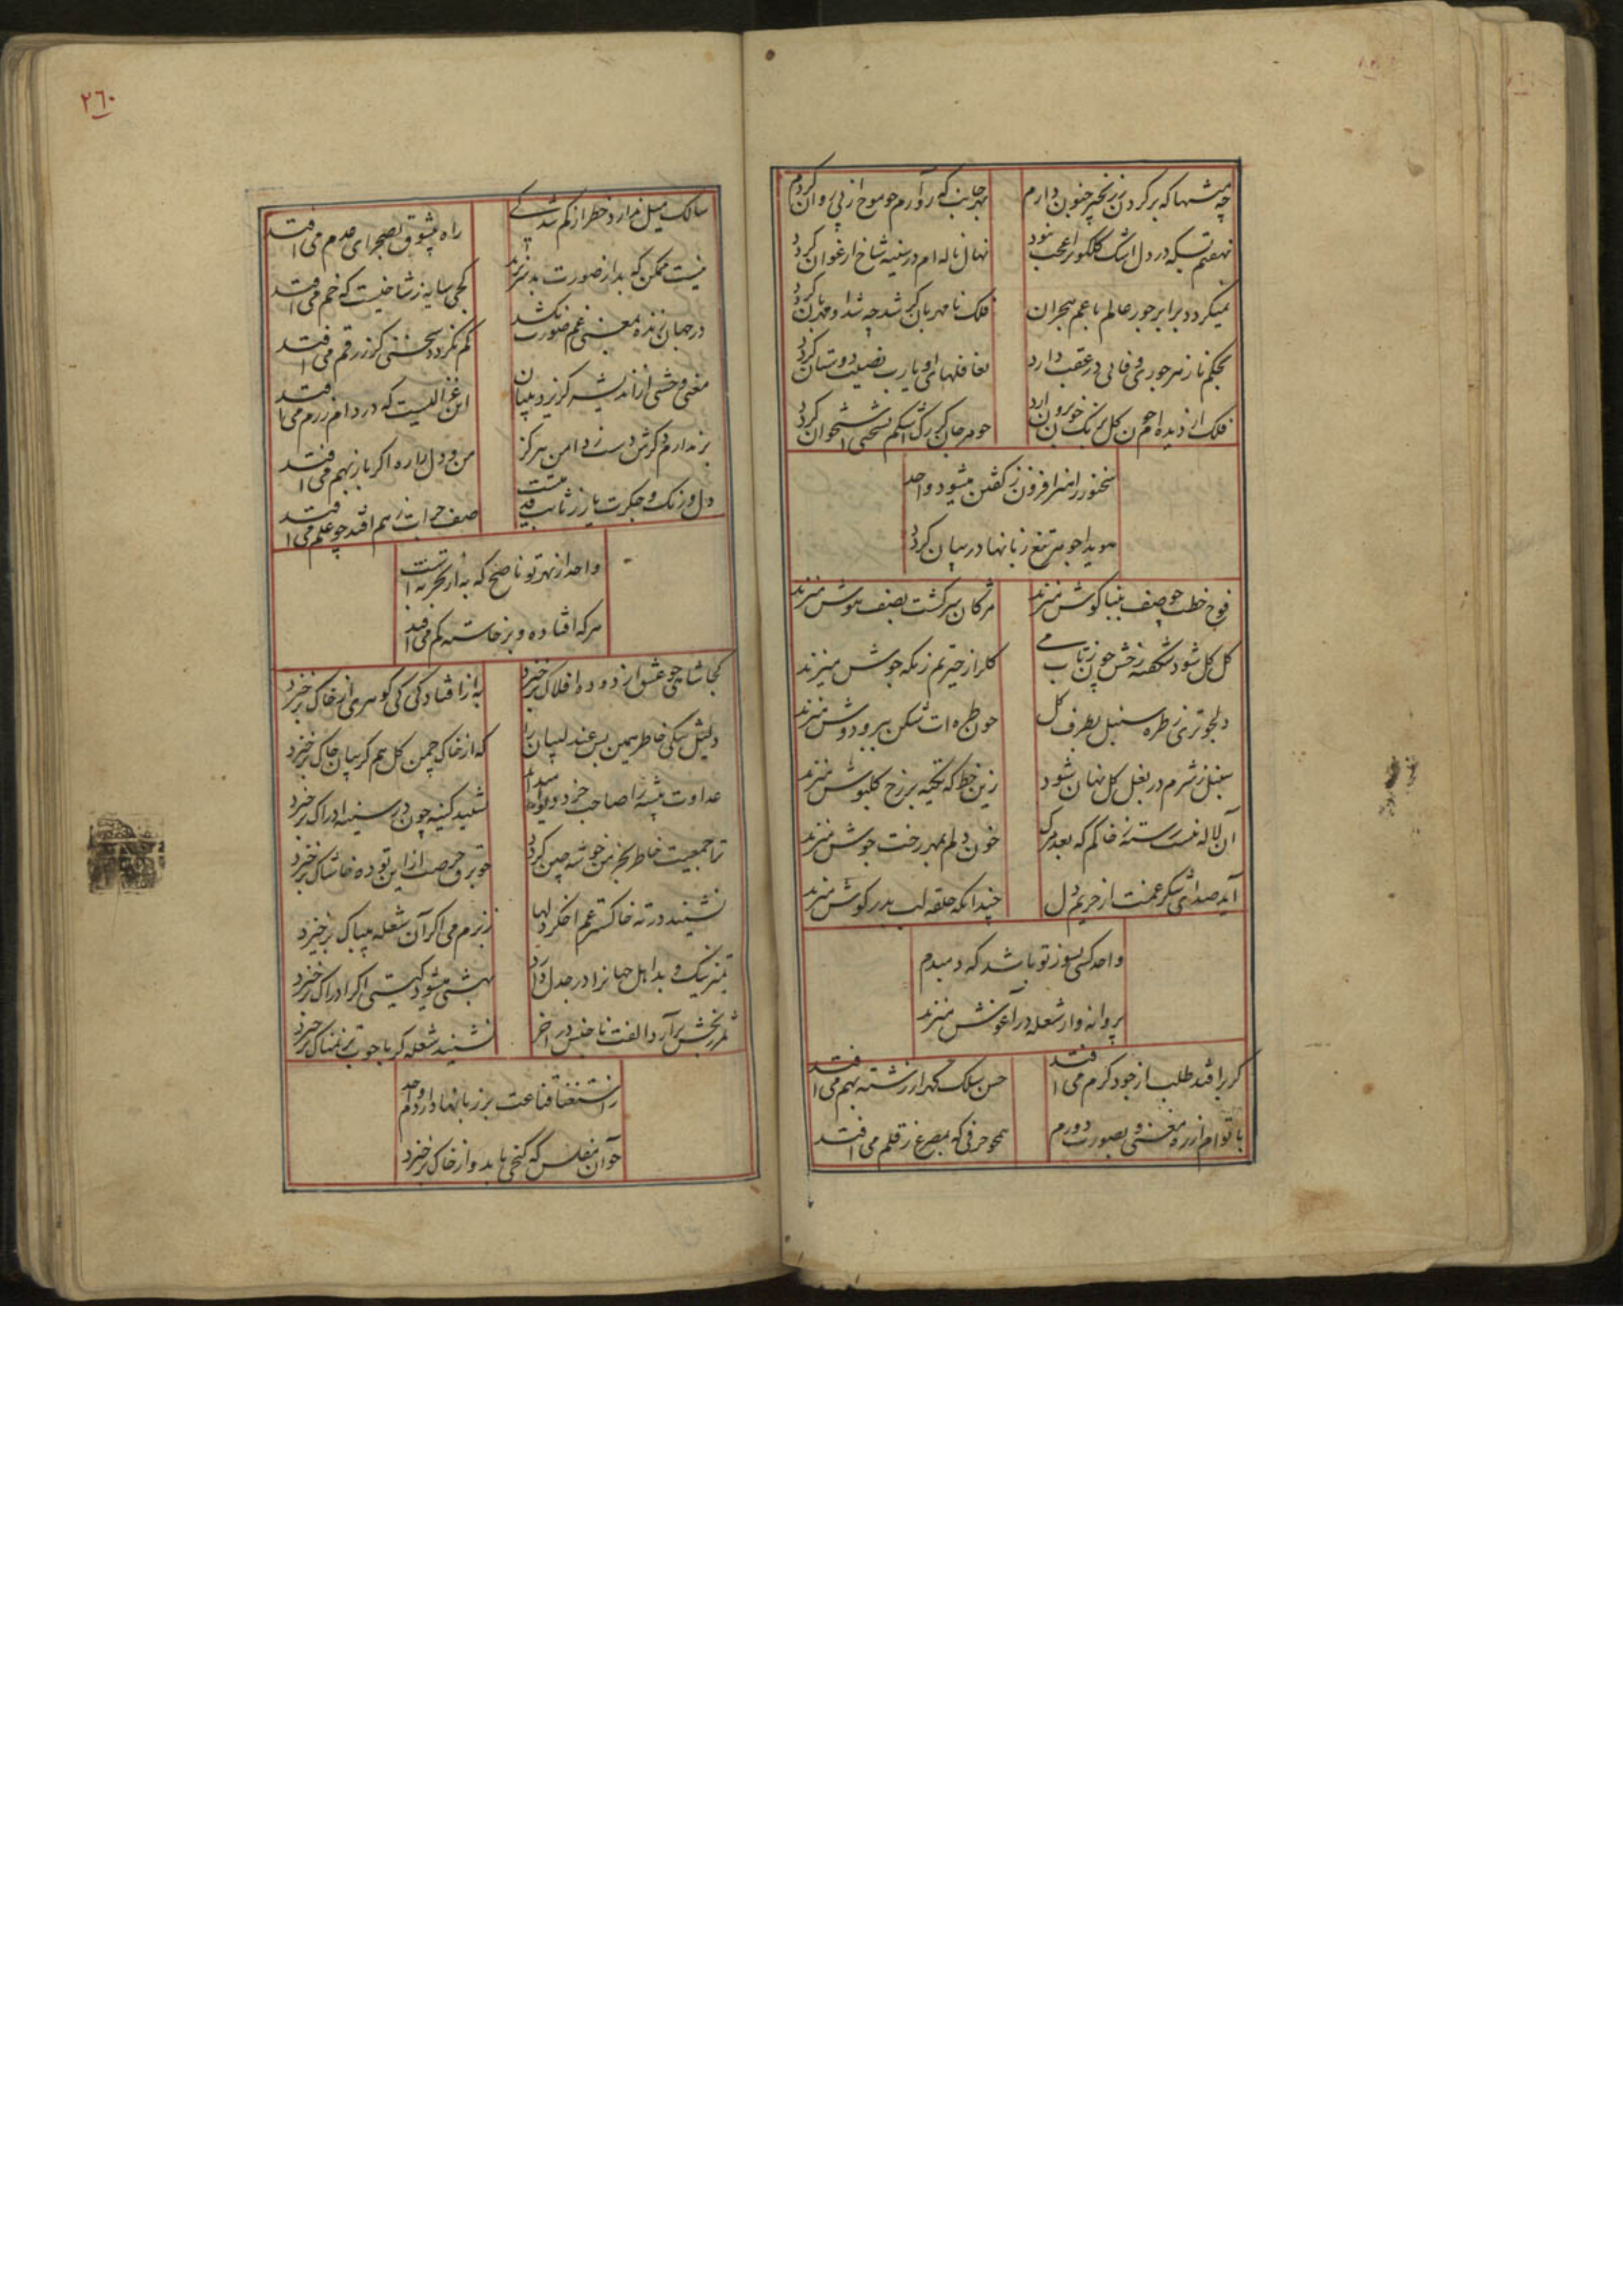 چه منتها که بر کردن ز زنجیر جنون دارم
بهر جانب که رو آرم چو موج از پی روان کردم
نهفتم بسکه در دل اشک کلکون را عجب نبود
نهال ناله ام در سینه شاخ ارغوان کردد
نمیکردد برابر جور عالم با غم هجران
فلک نا مهربان کر شد چه شد او مهربان کردد
بحکم ناز هر جوری وفائی در عقب دارد
تغافلهای او یا رب نصیب دوستان کردد
فلک از دیده ام خون کل رنک خورون دارد
چو مرجان کر رک اشکم بسختی استخوان کردد
سخنور را هنر افزون ز کفتن میشود واحد
هویدا جوهر تیغ زبانها در بیان کردد
فوج خطت چو صف ببناکوش میزند
مژکان سرکشت بصف هوش میزند
کل کل شود شکفته رخش چون ز تاب می
کلزار حیرتم ز نکه جوش میزند
دلجوتری ز طره سنبل بطرف کل
چون طره ات شکن بسر دوش میزند
سنبل ز شرم در بغل کل نهان شود
زین خط که تکیه بر رخ کلپوش میزند
آن لاله نیست رسته ز خاکم که بعد مرک
خون دلم بمهر رخت جوش میزند
آید صدای شکر غمت از حریم دل
چندانکه حلقه لب بدر کوش میزند
واحد کسی بسوز تو باشد که دمبدم
پروانه وار شعله در آغوش میزند
کر برافتد طلب از جود کرم می افتد
حسن سلک کهر از رشته بهم می افتد
با تو ام از ره معنی و بصورت دورم
همچو حرفی که بمصرع ز قلم می افتد
سالک میل ندارد خطر از کم شدکی
راه عشوق بصحرای عدم می افتد
نیست ممکن که بد از صورت بد نزند
کجی سایه ز شاخیست که خم می افتد
در جهان زنده معنی غم صورت نکشد
کم نکردد سخنی کز زر قم می افتد
معنی وحشی از اندیشه کریزد بمیان
این غزالیست که در دام ز رم می افتد
بر ندارم ز کرش دست ز دامن هرکز
من و دل را ره اکر باز بهم می افتد
صف جرات ز هم افتد چو علم می افتد
واحد از بهر تو ناصح که به از تجربه است
هرکه افتاده و برخاسته کم می افتد
کجا شاخی چو عشق از دوده افلاک برخیزد
به از افتادکی کی کوهری از خاک برخیزد
دلیل نیکی خاطر همین بس عندلیبان را
که از خاک چمن کل هم کریبان چاک برخیزد
عداوت پیشه را صاحب خرد دیوانه میداند
نشیند کینه چون در سینه ادراک برخیزد
ترا جمعیت خاطر بخرمن خوشه چین کردد
چو برق حرصت از این توده خاشاک برخیزد
نشیند در ته خاکستر غم اخکر دلها
ز بزم می اکر آن شعله بیباک برخیزد
تمیز نیک و بد اهل جهانرا در جدل دارد
بهشتی میشود کیتی اکر ادراک برخیزد
ثمر رنجش برآرد الفت ناجنس در آخر
نشیند شعله کر با چوب تر نمناک برخیزد
ز استغنا قناعت بر زبانها دارد واحد
چو آن مفلس که کنجی یابد و از خاک برخیزد
۲٦۰